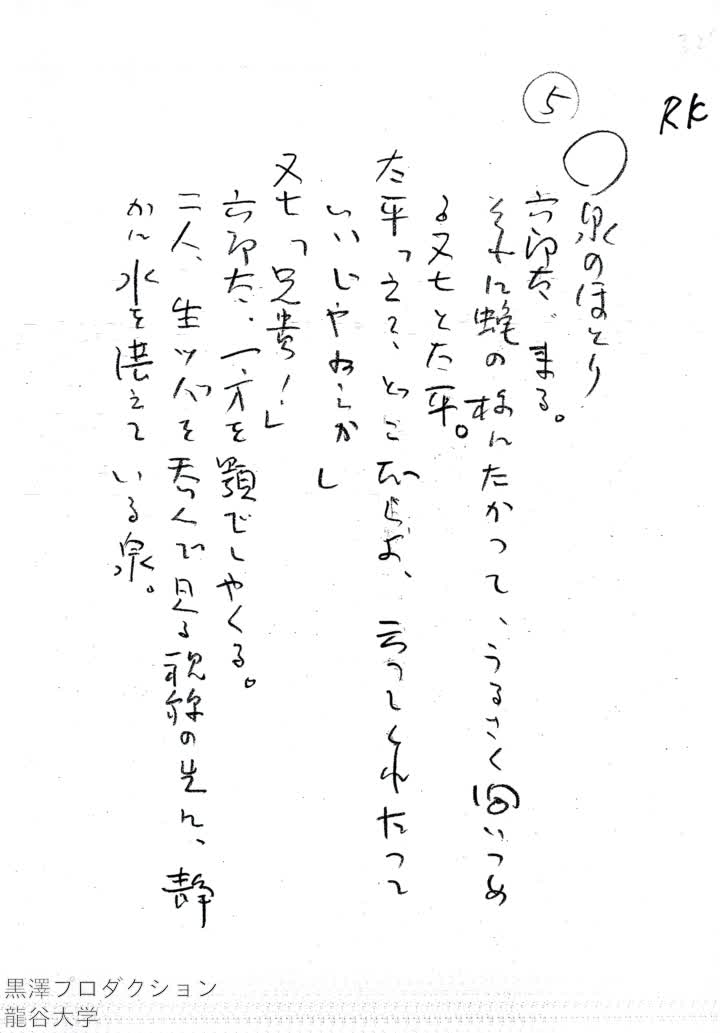 RK
⑤
○ 泉のほとり
六郎太、来る。
それに蛇の様にたかって、うるさく問いつめ
る又七と太平。
太平「えゝ、どっこ
云ってくれたって
いいじゃねえか」
又七「兄貴！」
六郎太、一方を顎でしゃくる。
二人、生ツバを呑んで見る視線の先に、静
かに水を湛えている泉。
黒澤プロダクション
龍谷大学